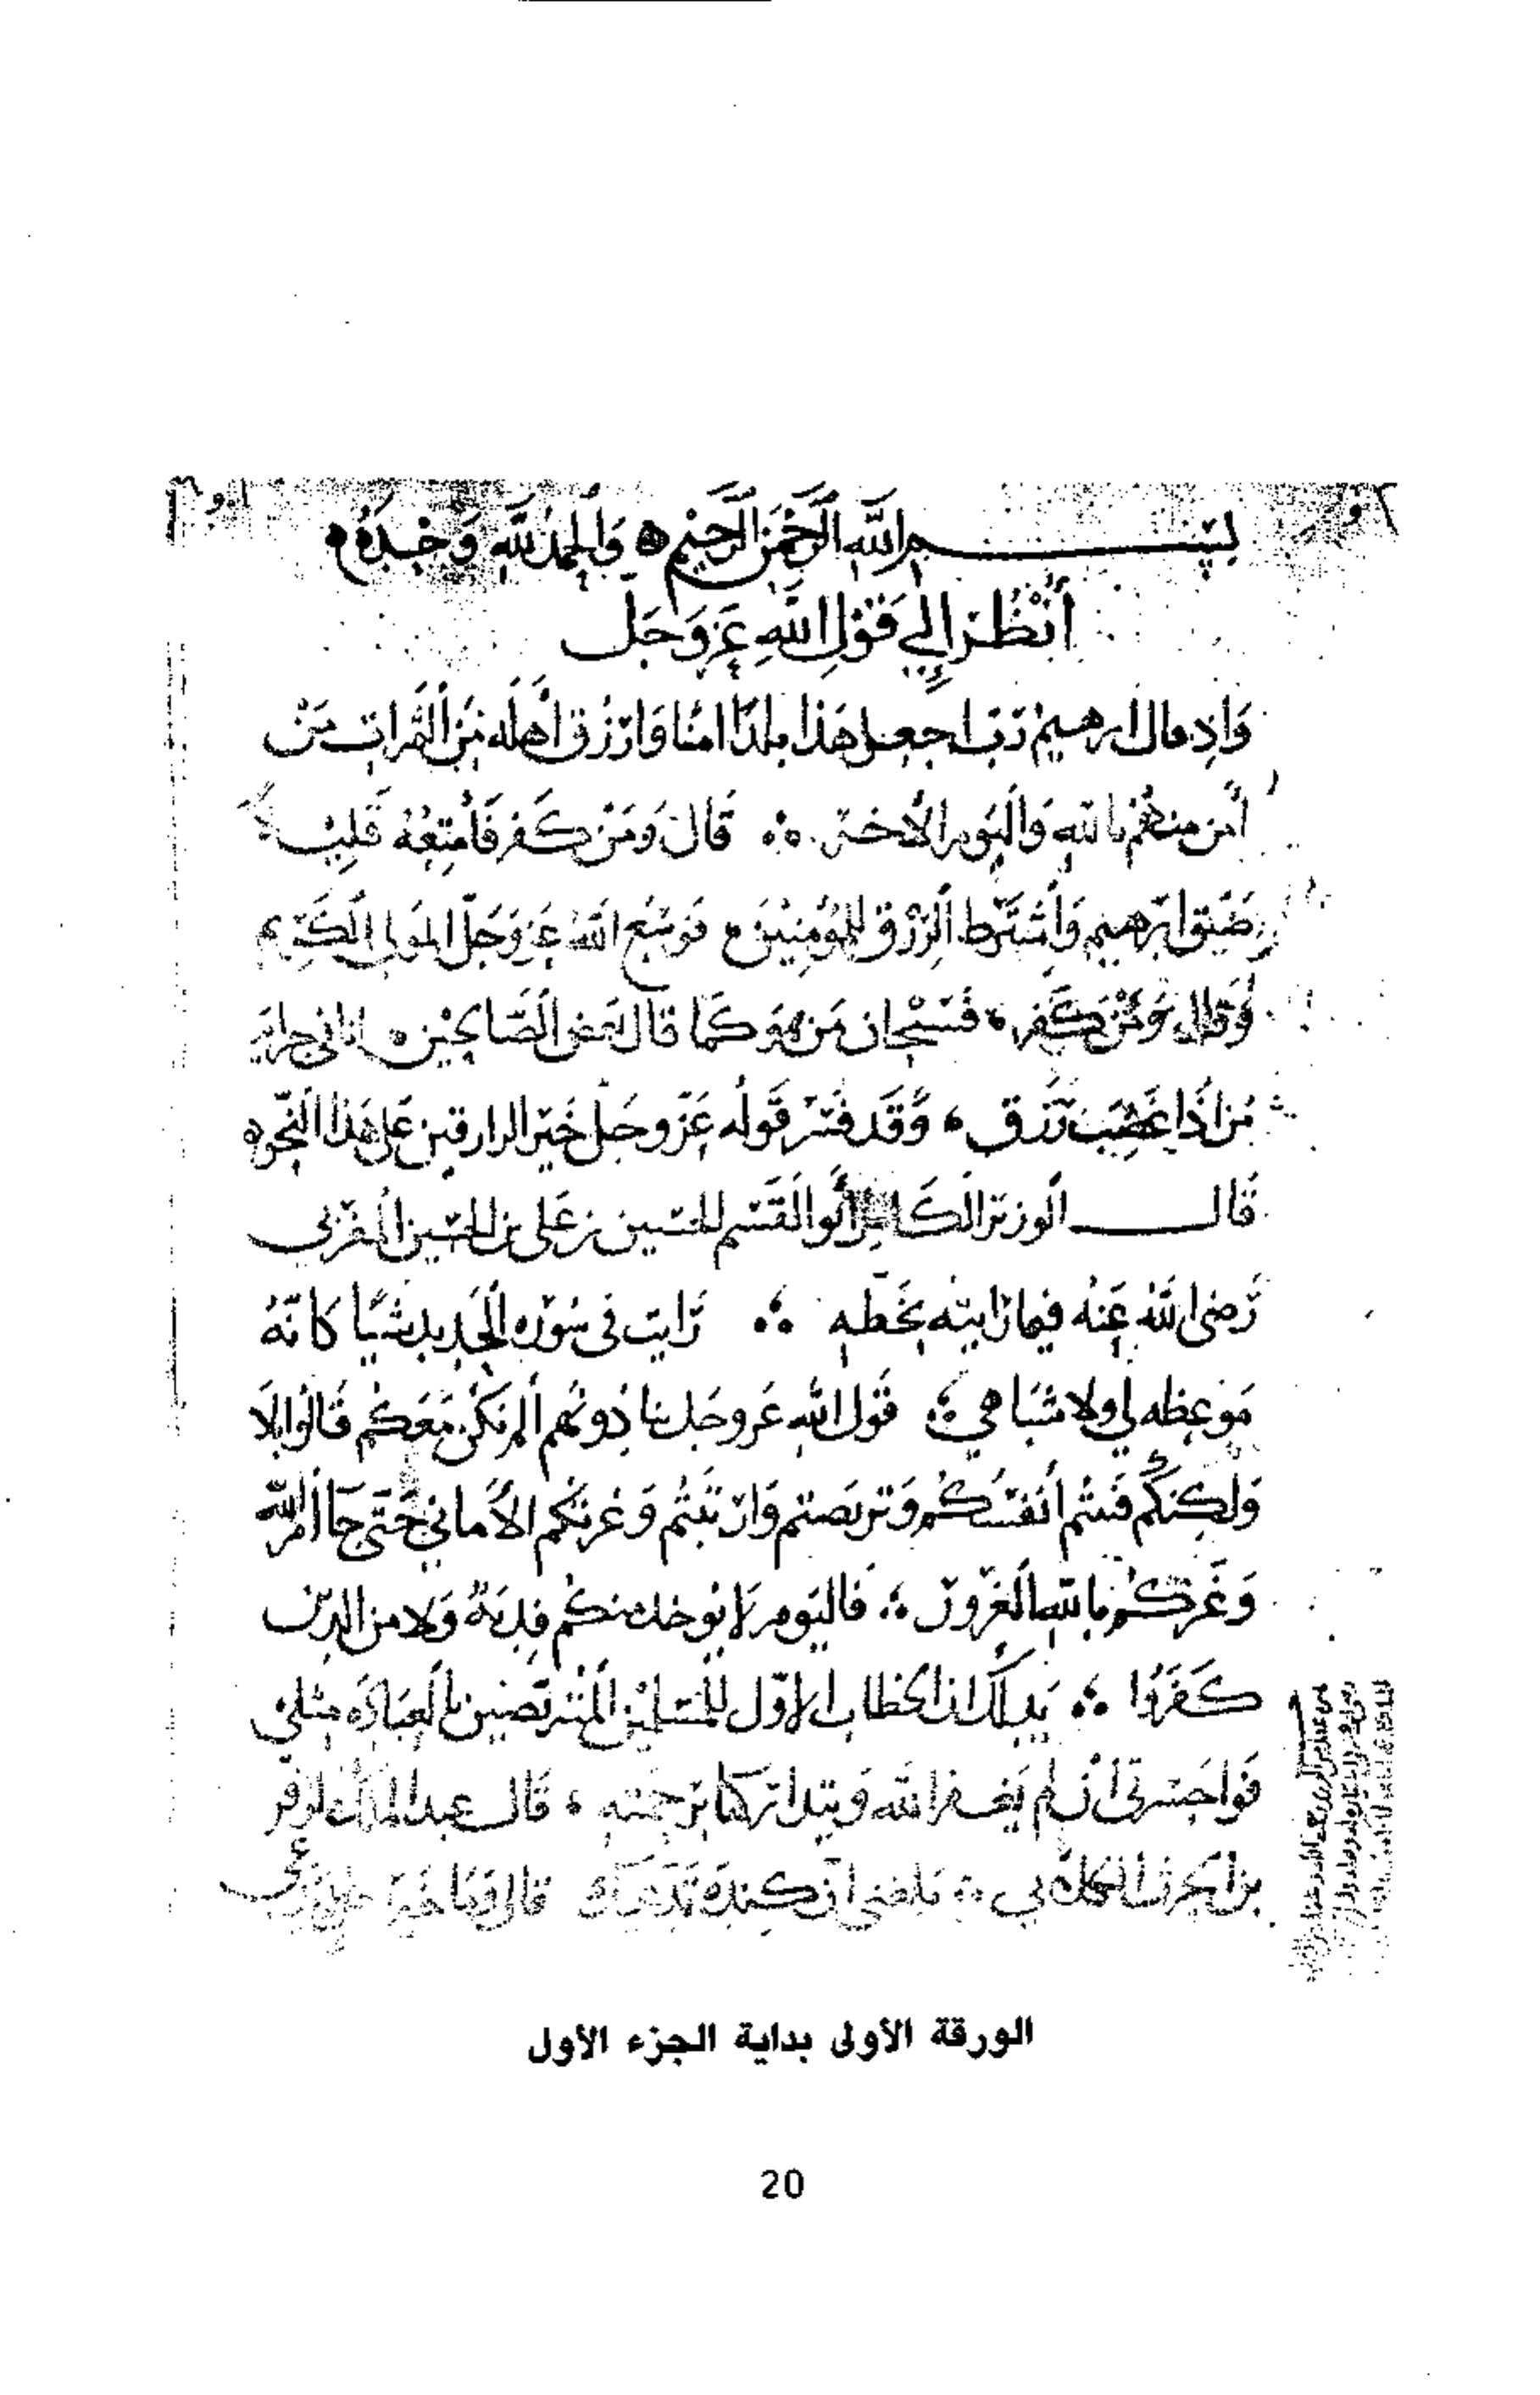 بسم الله الرحمن الرحيم ه والحمد لله وحده
أنظر إلي قول الله عز وجل
واد قال ابرهيم رب اجعل هذا بلدا امنا وارزق أهله من الثمرات من
آمن منهم بالله واليوم الأخر ∴ قال ومن كفر فأمتعه قليلا
ضيق ابرهيم وأشترط الرزق للمؤمنين فوسع الله عز وجل المولي الكريم
وقال ومن كفر، فسبحان من هو كما قال بعض الصالحين
من اذا غضب رزق، وقد فسر قوله عز وجل خير الرازقين على هذا النحو ه
قال الوزير الكامل أبو القسم الحسين بن على بن الحسين المغربي
رضى الله عنه فيما رايته بخطه ∴ رايت فى سوره الحديد شيا كانه
موعظه لي ولاشباهي ∴ قول الله عز وجل ينادونهم ألم نكن معكم قالوا بلا
ولكنكم فتنتم أنفسكم وتربصتم وارتبتم وغرتكم الأماني حتى جا أمر الله
وغركم بالله الغرور ∴ فاليوم لا يوخذ منكم فدية ولا من الذين
كفروا ∴ يدلك ان الخطاب الاول للمسلمين المتربصين بالعباده مثلي
فواحسرتى أن لم يغفر الله ويتداركنا برحمته، قال عبد الملك
بن
الورقة الأولى بداية الجزء الأول
20